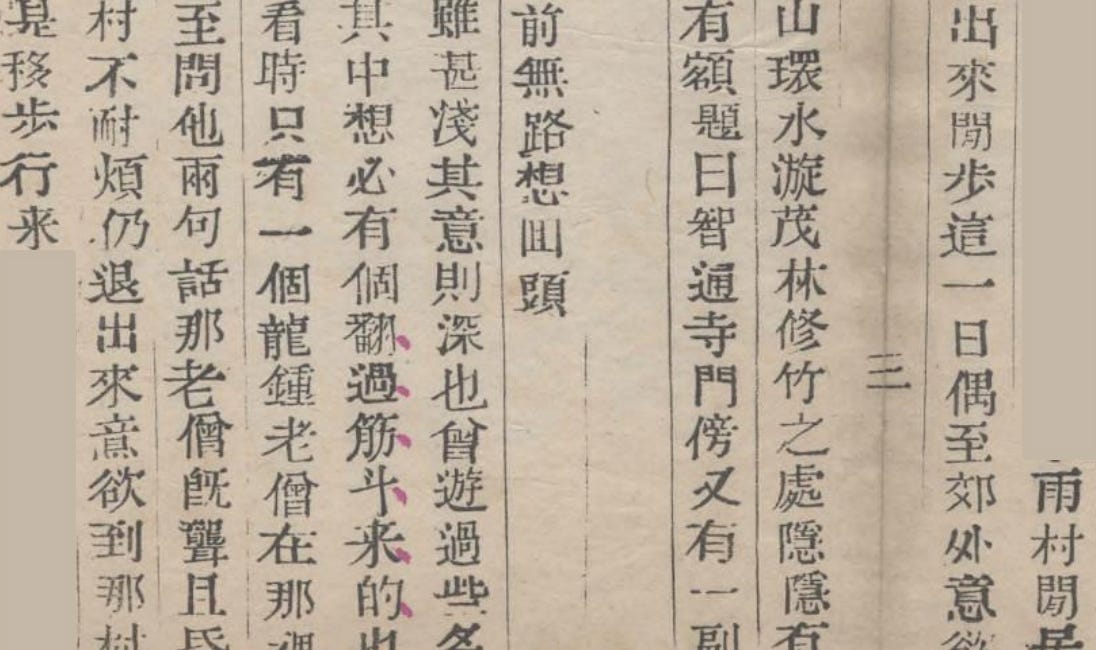 雨村閒居
出來閒步這一日偶至郊外意欲
三
山環水漩茂林修竹之處隱隱有
有額題曰智通寺門傍又有一副
前無路想囬頭
雖甚淺其意則深也曾遊過些名
其中想必有個翻過筋斗来的也
看時只有一個龍鍾老僧在那裡
至問他兩句話那老僧既聾且昏
村不耐煩仍退出來意欲到那村
是移步行来